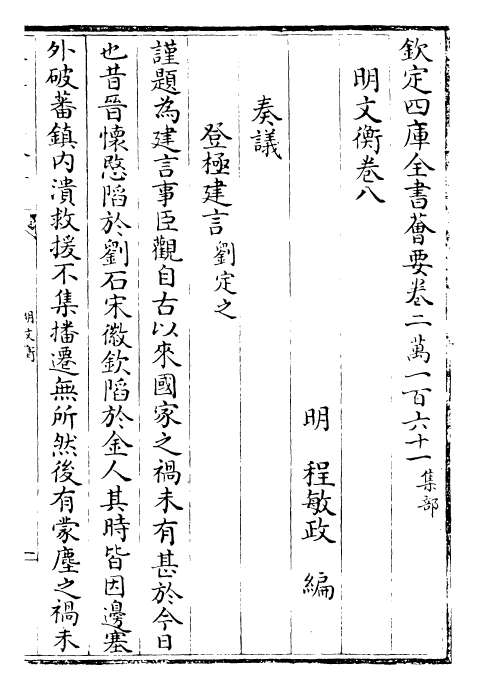 欽定四庫全書薈要卷二萬一百六十一集部
明文衡卷八
明 程敏政 編
奏議
登極建言劉定之
謹題為建言事臣觀自古以來國家之禍未有甚於今日
也昔晉懷愍陷於劉石宋徽欽陷於金人其時皆因邊塞
外破蕃鎮内潰救援不集播遷無所然後有蒙塵之禍未
明文衡